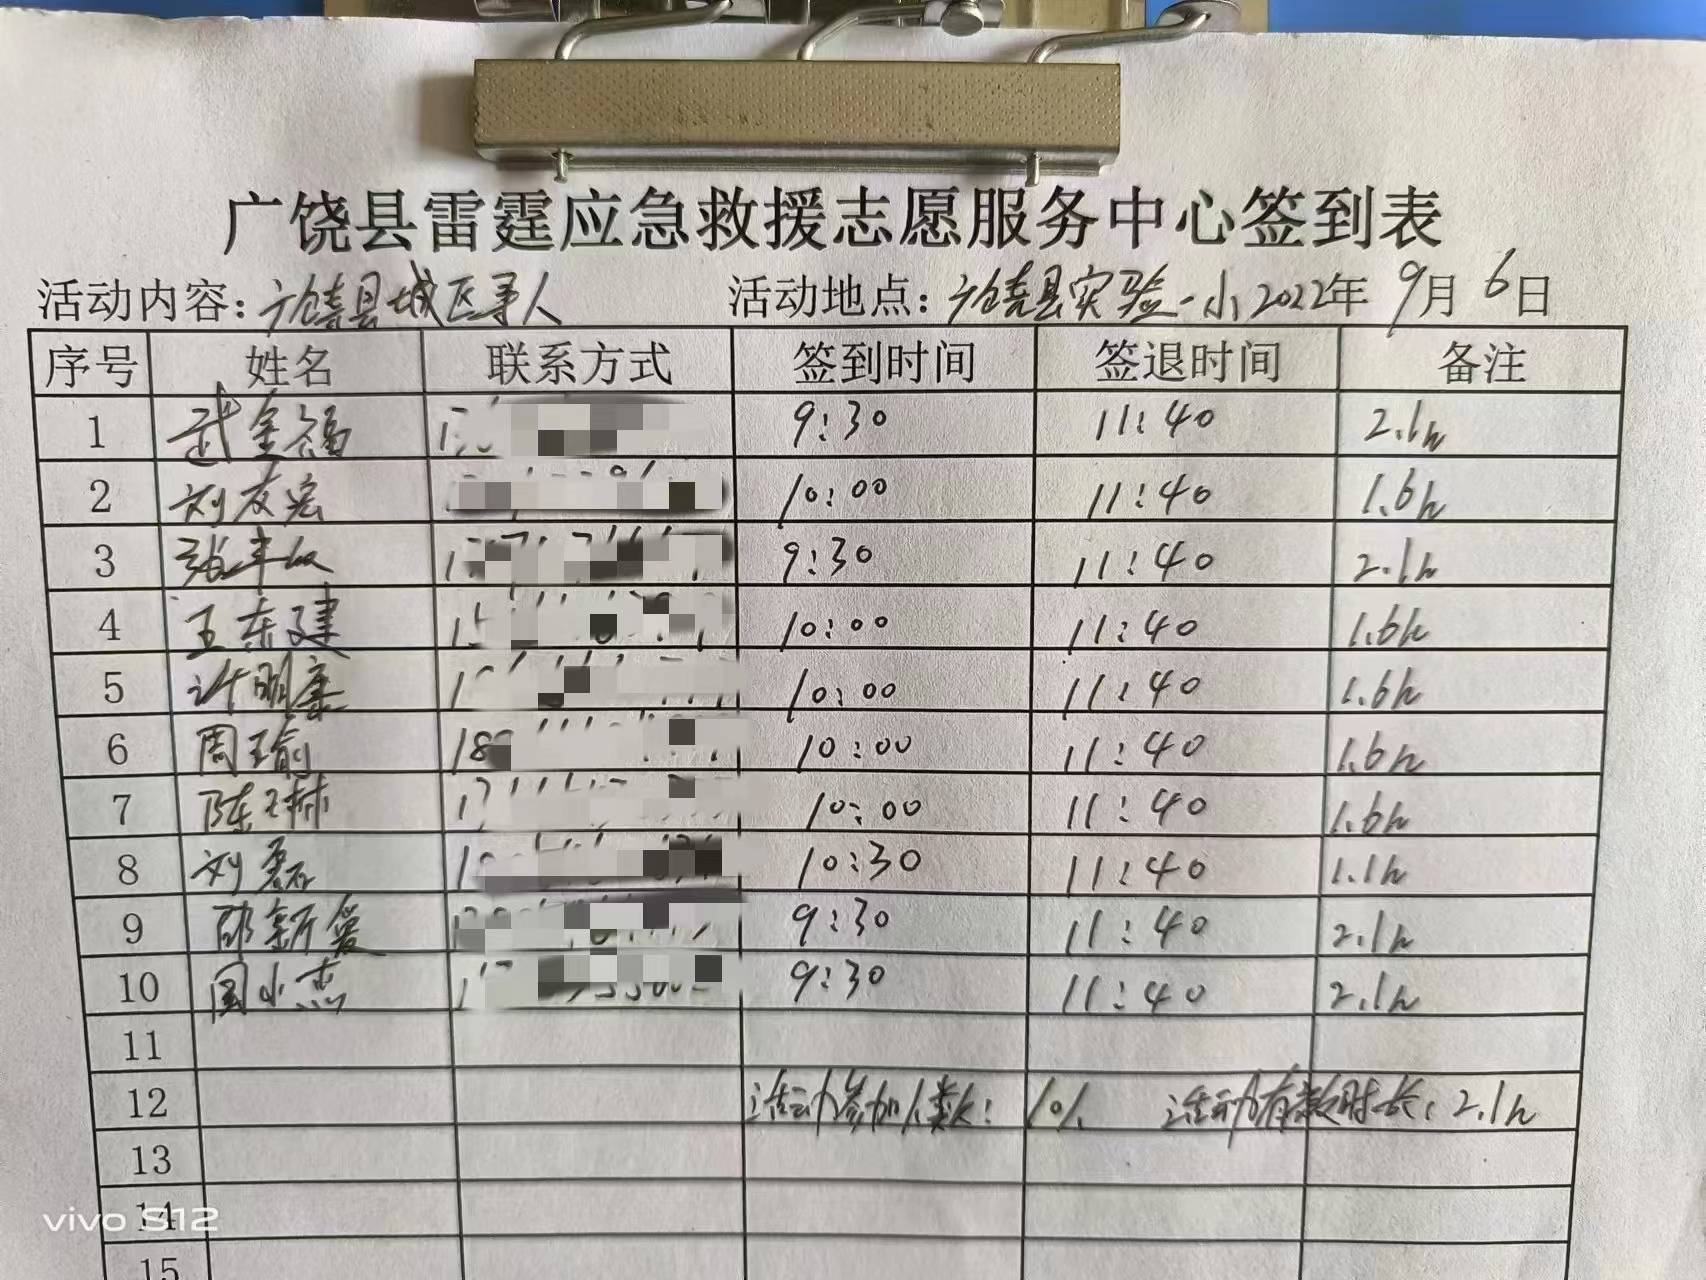 广饶县雷霆应急救援志愿服务中心签到表
活动内容：广饶县城区寻人 活动地点：广饶县实验一小 2022年 9月 6日
序号 姓名 联系方式 签到时间 签退时间 备注
1 武金福 9:30 11:40 2.1h
2 刘友宏 10:00 11:40 1.6h
3 9:30 11:40 2.1h
4 王东建 10:00 11:40 1.6h
5 许明康 10:00 11:40 1.6h
6 周玉瑜 18 10:00 11:40 1.6h
7 陈琳 10:00 11:40 1.6h
8 刘磊 10:30 11:40 1.1h
9 新爱 9:30 11:40 2.1h
10 周小杰 9:30 11:40 2.1h
11
12 活动参加人数：10人 活动有效时长：2.1h
13
14
15
vivo S12